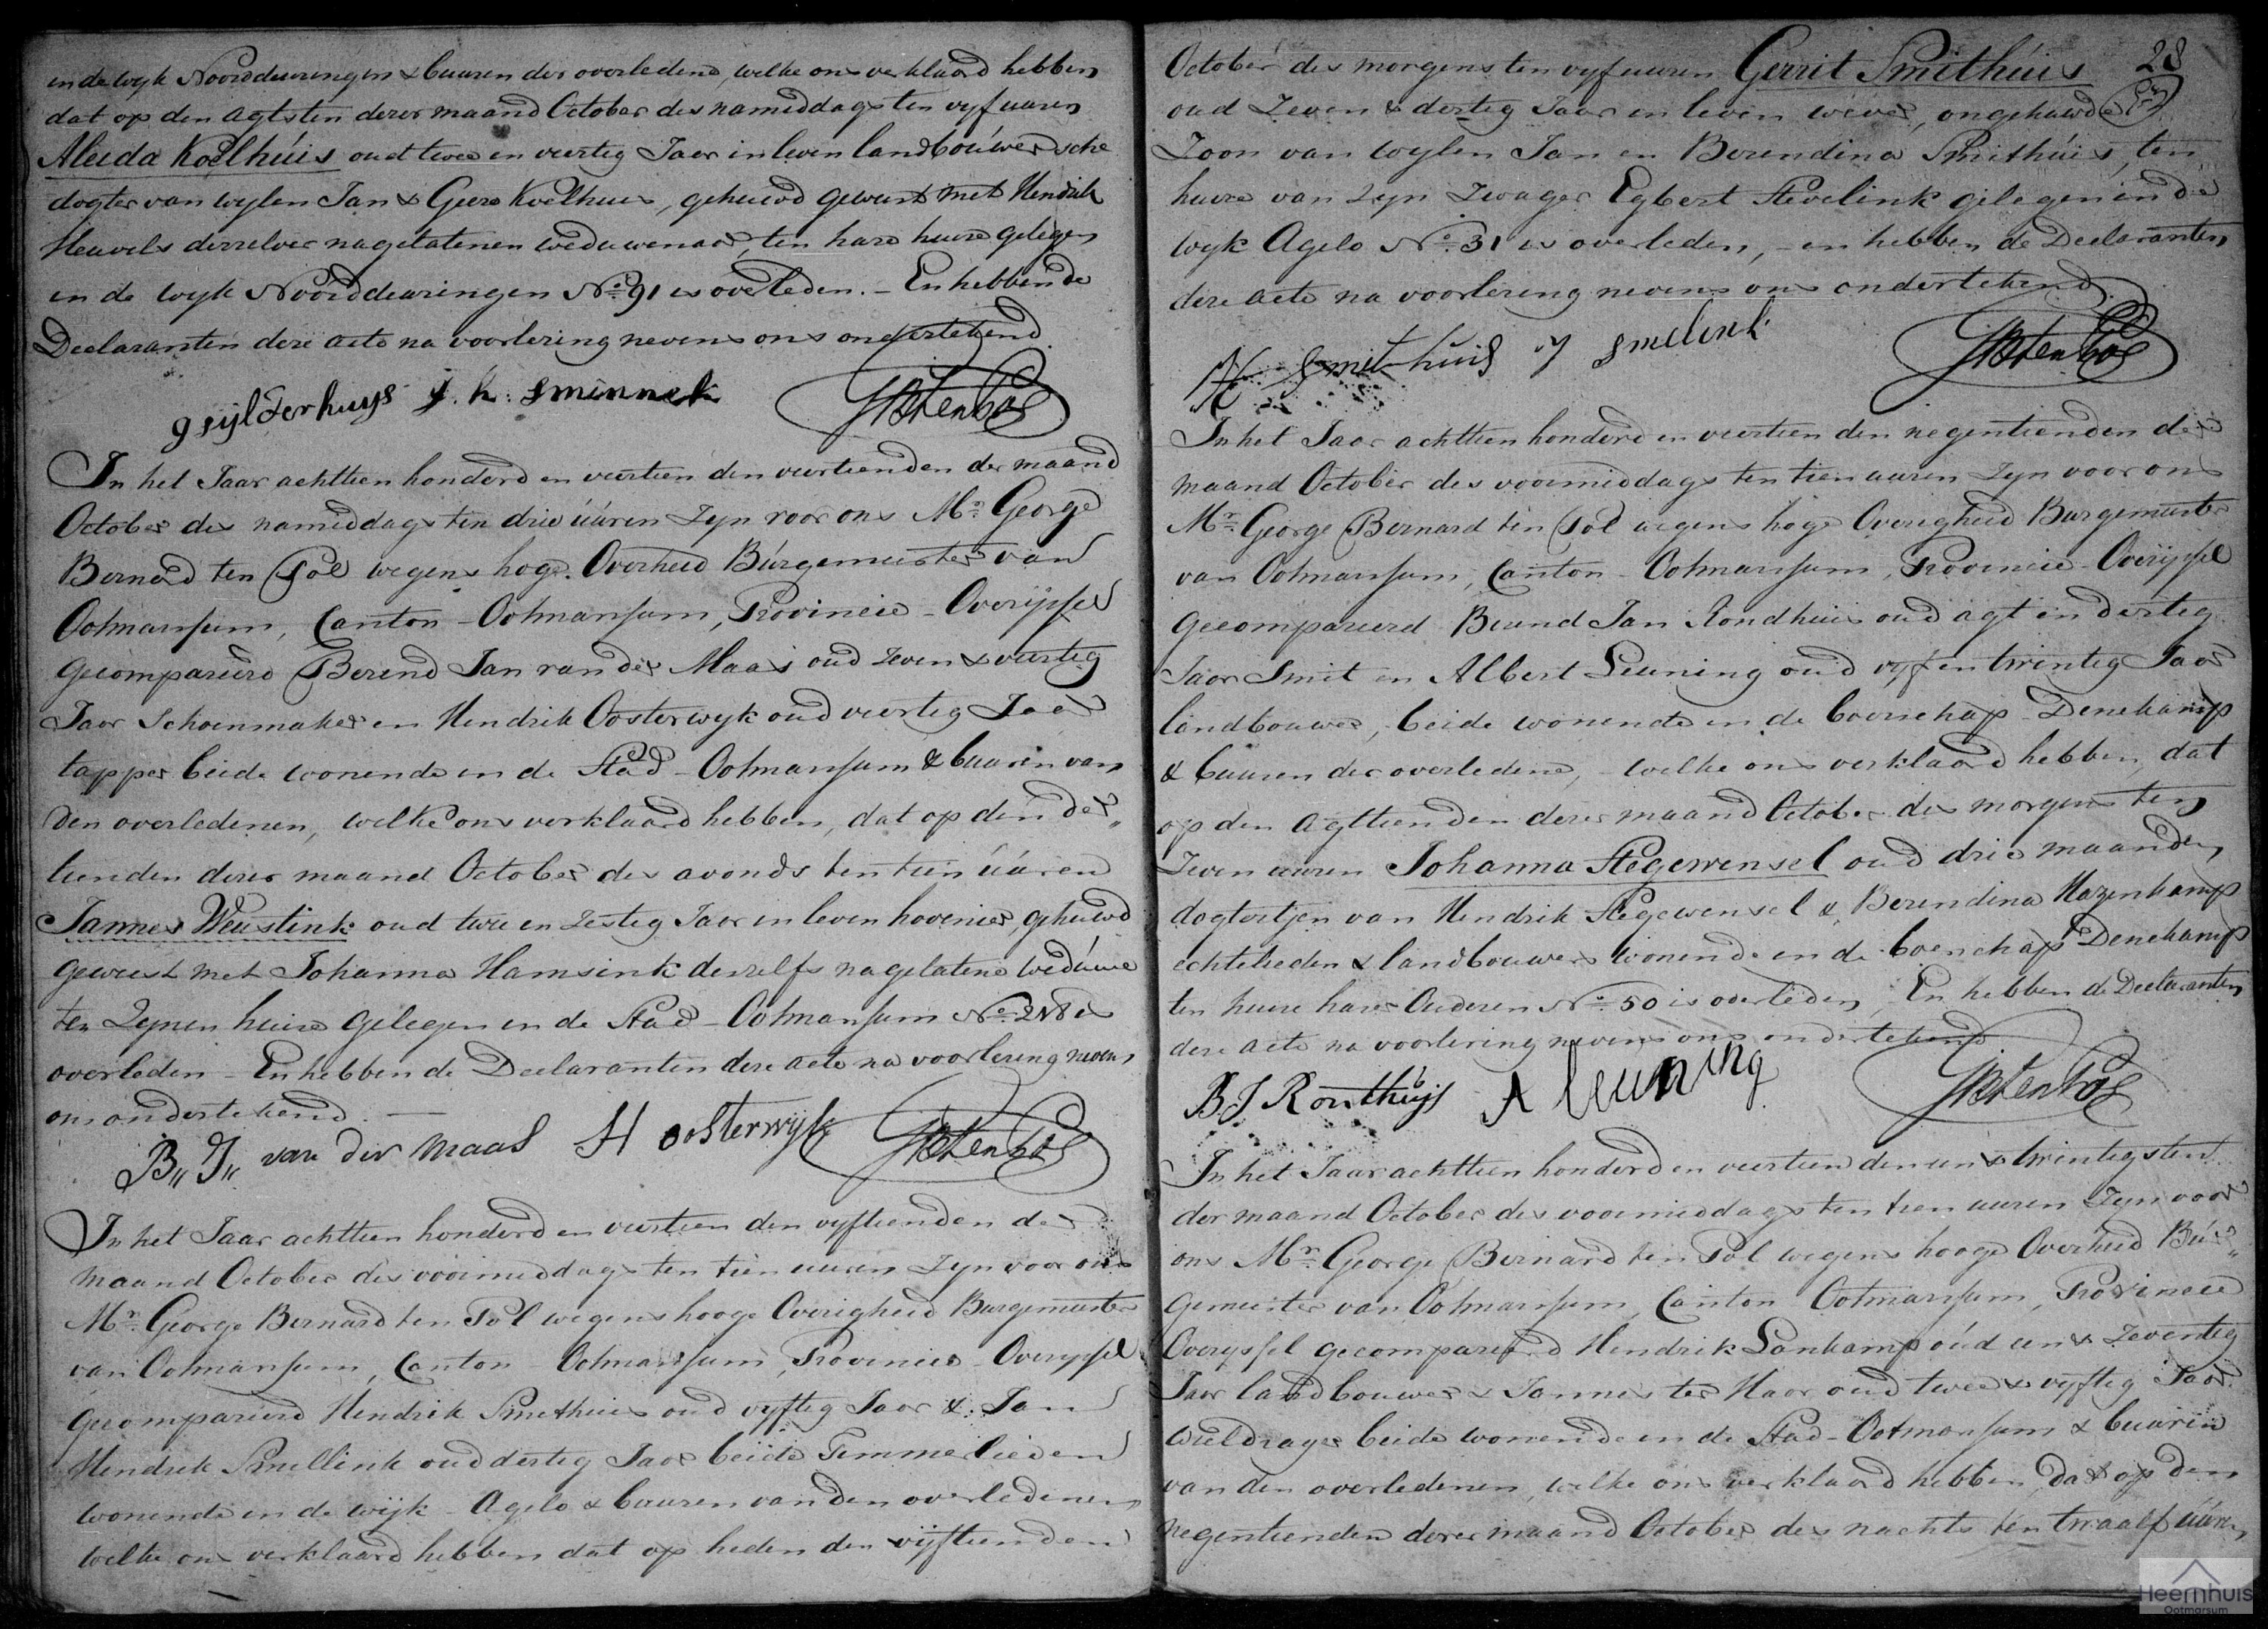 in de wyk Noorddeuringen & buuren der overledene, welke ons verklaard hebben
dat op den agtsten dezer maand October des namiddags ten vyf uuren
Aleida Koelhúis oud twee en veertig Jaar in leven landboúwersche
dogter van wylen Jan & Geere Koelhuis, gehuwd geweest met Hendrik
Heuvels deszelver nagelatenen weduwenaar, ten hare huize gelegen
in de wyk Noorddeuringen No. 91 is overleden. – En hebben de
Declaranten deze acte na voorlezing nevens ons ondertekend.
g sylderhuys J. h. sminnek GB ten Pol
In het Jaar achttien honderd en veertien den veertienden der maand
October des namiddags ten drie úúren Zyn voor ons Mr. George
Bernard ten Pol wegens hoge Overheid Búrgemeester van
Ootmarssum, Canton - Ootmarssum, Provincie - Overijssel
gecompareerd Berend Jan van der Maas oud Zeven & veertig
Jaar Schoenmaker en Hendrik Oosterwyk oud veertig Jaar
tapper beide wonende in de Stad - Ootmarssum & buuren van
den overledenen, welke ons verklaard hebben, dat op den der„
tienden dezer maand October des avonds ten tien úúren
Jannes Weustink oud twee en Zestig Jaar in leven hovenier, gehuwd
geweest met Johanna Hamsink deszelfs nagelatene wedúwe
ten Zynen huize gelegen in de Stad - Ootmarssum No. 218 is
overleden – En hebben de Declaranten deze acte na voorlezing nevens
ons ondertekend. —
B„ J„ van der maas H oosterwyk GB ten Pol
In het Jaar achttien honderd en veertien den vyftienden der
maand October des voormiddags ten tien uuren Zyn voor ons
Mr. George Bernard ten Pol wegens hooge Overigheid Burgemeester
van Ootmarssum, Canton - Ootmarssum, Provincie - Overyssel
gecompareerd Hendrik Smithuis oud vyftig Jaar & Jan
Hendrik Smellink oud dertig Jaar beide Timmerlieden
wonende in de wijk - Agelo & buuren van den overledenen
welke ons verklaard hebben dat op heden den vyftienden
28
October des morgens ten vyf uuren Gerrit Smithúis
oud Zeven & dertig Jaar in leven wever, ongehuwde
Zoon van wylen Jan en Berendina Smithúis, ten
huize van Zyn Zwager Egbert Stevelink gelegen in de
wyk Agelo No. 31 is overleden, – en hebben de Declaranten
deze acte na voorlezing nevens ons ondertekend.
H Smithuis J smelink GB ten Pol
In het Jaar achttien honderd en veertien den negentienden der
maand October des voormiddags ten tien uuren Zyn voor ons
Mr. George Bernard ten Pol wegens hoge Overigheid Burgemeester
van Ootmarssum, Canton - Ootmarssum, Provincie - Overijssel
gecompareerd Berend Jan Rondhuis oud agt en dertig
Jaar Smit en Albert Leuning oud vyf en twintig Jaar
landbouwer, beide wonende in de boerschap - Denekamp
& buuren der overledene, – welke ons verklaard hebben, dat
op den agttienden dezer maand October des morgens ten
Zeven uuren Johanna Stegewensel oud drie maanden
dogtertjen van Hendrik Stegewensel & Berendina Hazenkamp
echtelieden & landbouwers wonende in de boerschap Denekamp
ten huize harer Ouderen No. 50 is overleden, En hebben de Declaranten
deze acte na voorlezing nevens ons ondertekend
B J Ronthuys A leuning GB ten Pol
In het Jaar achttien honderd en veertien den een & twintigsten
der maand October des voormiddags ten tien uuren Zyn voor
ons Mr. George Bernard ten Pol wegens hooge Overheid Bur„
gemeester van Ootmarssum, Canton Ootmarssum, Provincie
Overyssel gecompareerd Hendrik Lankamp oúd een & Zeventig
Jaar landbouwer & Jannes ter Haar oud twee & vyftig Jaar
wieldrayer beide wonende in de Stad - Ootmarssum & buuren
van den overledenen, welke ons verklaard hebben, dat op den
negentienden dezer maand October des nachts ten twaalf úúren
Heernhuis
Ootmarsum